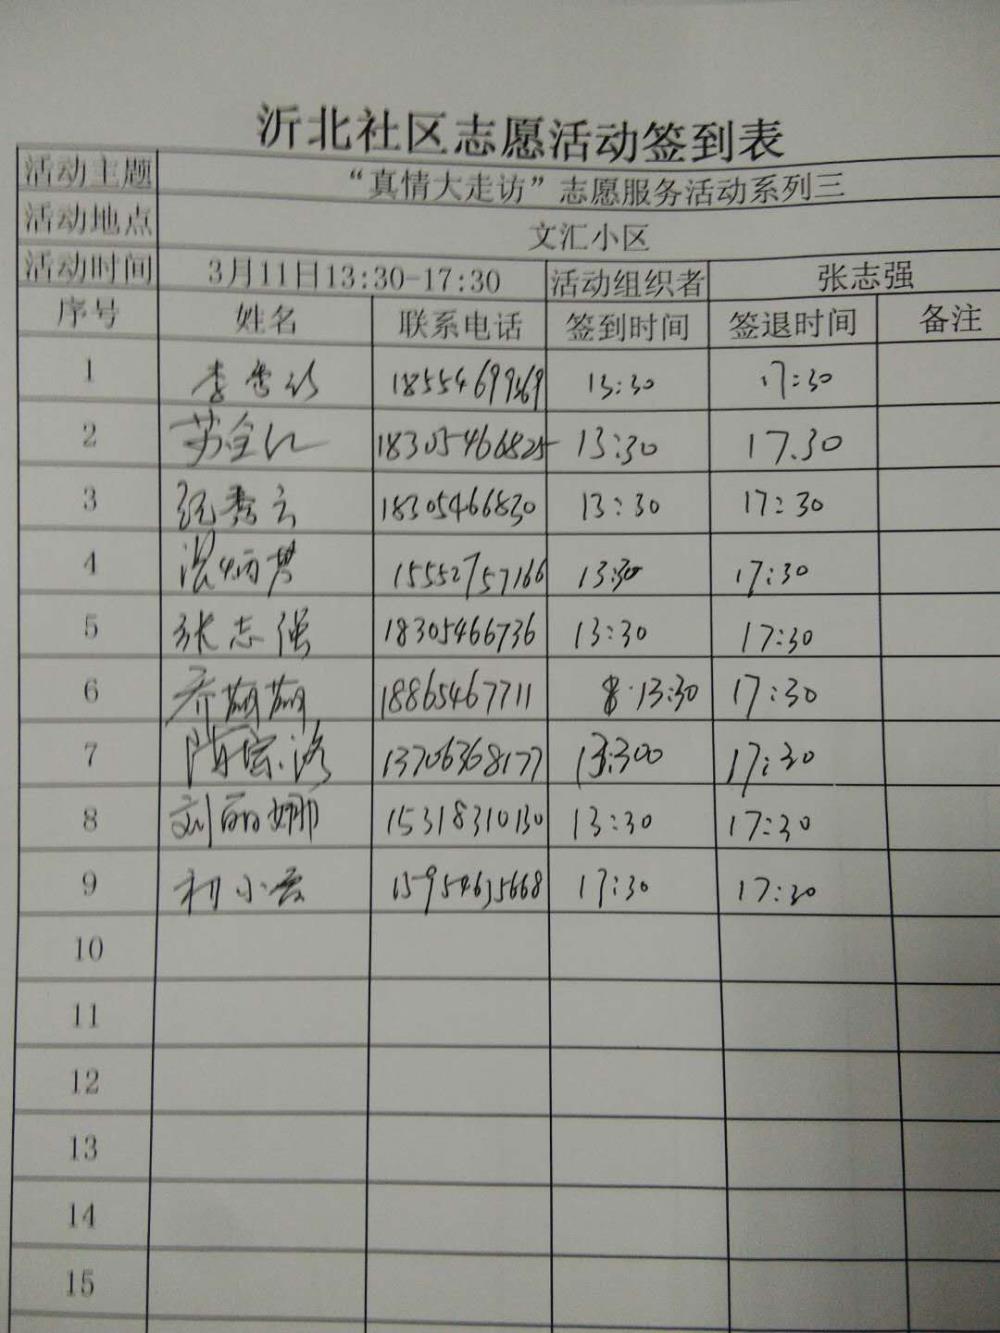 沂北社区志愿活动签到表
活动主题 “真情大走访”志愿服务活动系列三
活动地点 文汇小区
活动时间 3月11日13:30-17:30 活动组织者 张志强
序号 姓名 联系电话 签到时间 签退时间 备注
1 李雪 18554699369 13:30 17:30
2 苏全红 18305466825 13:30 17.30
3 纪秀云 18305466830 13:30 17:30
4 温炳贤 15552757166 13:30 17:30
5 张志强 18305466736 13:30 17:30
6 乔萌萌 18865467711 13:30 17:30
7 隋 13706368177 13:300 17:30
8 刘丽娜 15318310130 13:30 17:30
9 初小 15954635668 17:30 17:30
10
11
12
13
14
15